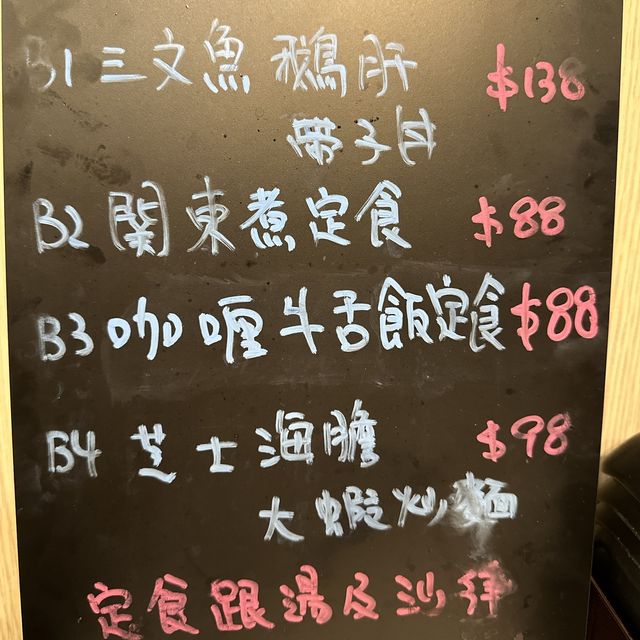 B1 三文魚 鵝肝 $138
帶子丼
B2 関東煮定食 $88
B3 咖喱牛舌飯定食 $88
B4 芝士海膽 $98
大蝦炒麵
定食跟湯及沙拜